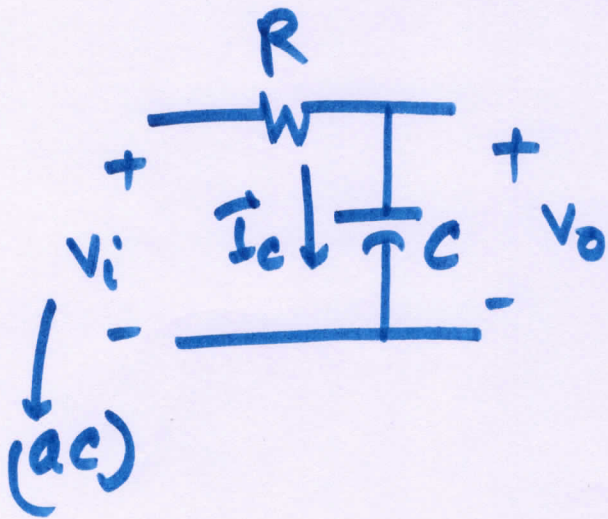 R
+ +
Vi Ic C Vo
- -
(ac)